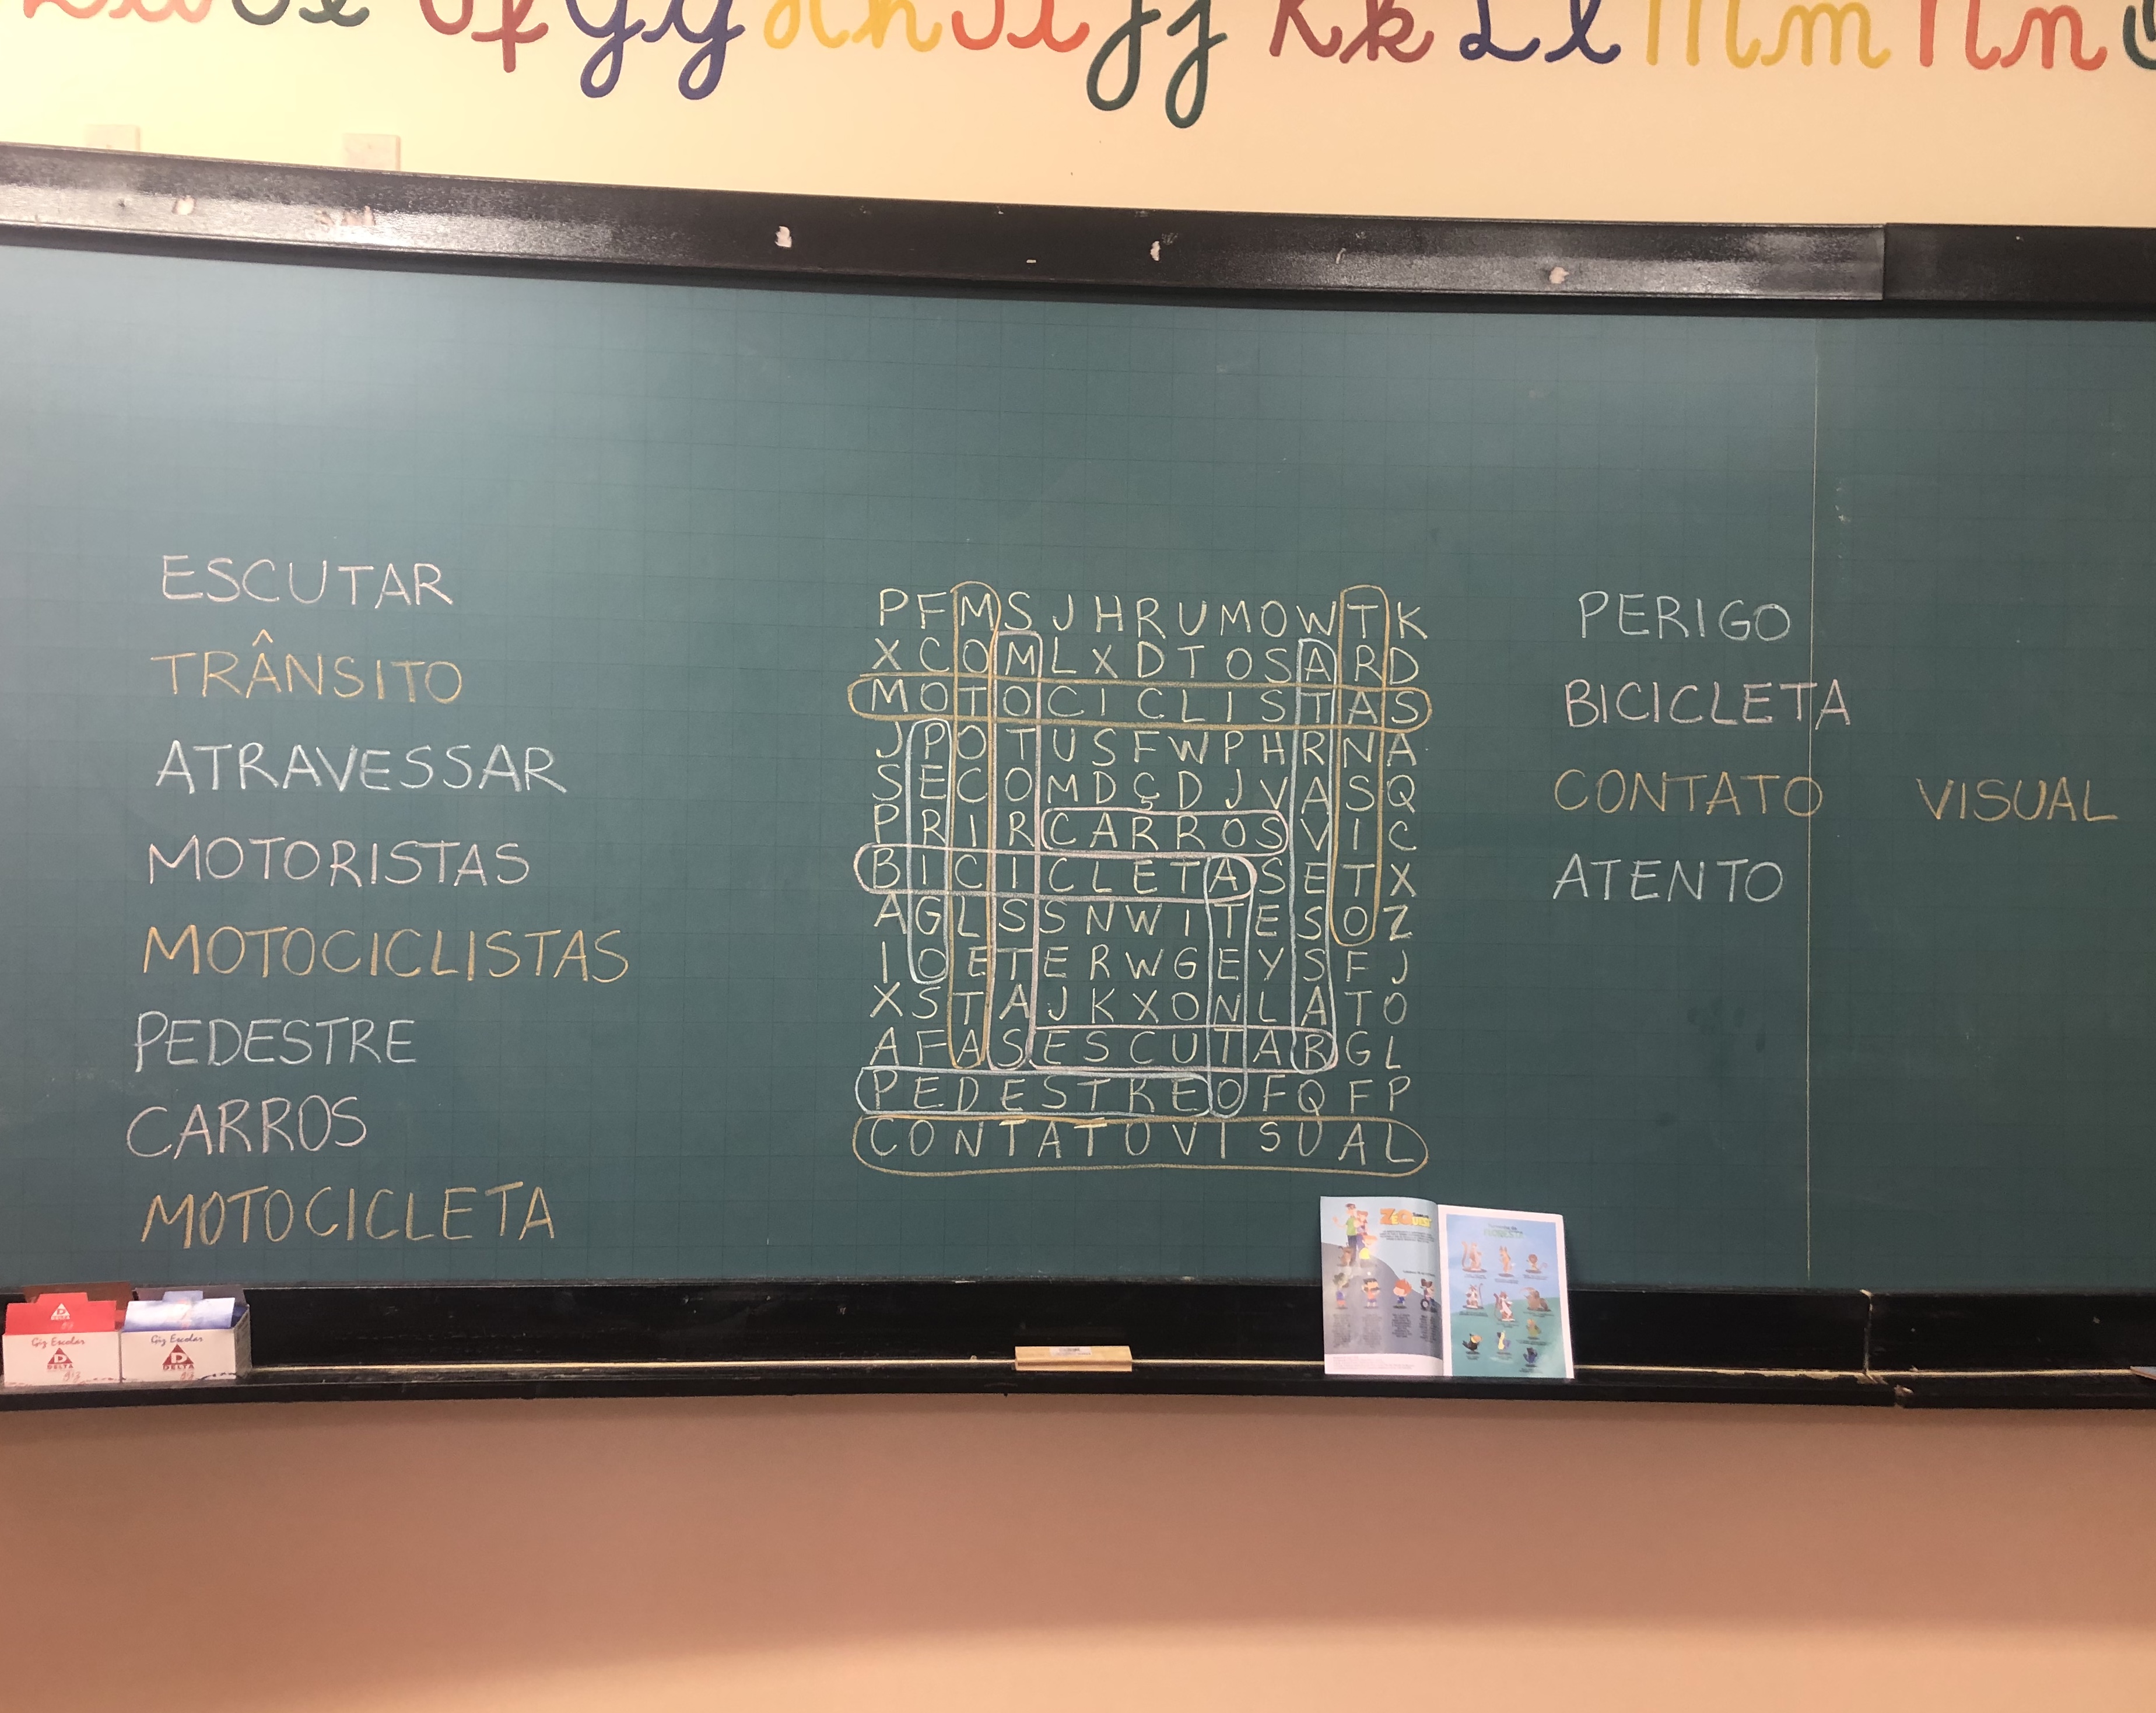 Ff Gg Hh Ii Jj Kk Ll Mm Nn
ESCUTAR
TRÂNSITO
ATRAVESSAR
MOTORISTAS
MOTOCICLISTAS
PEDESTRE
CARROS
MOTOCICLETA
P F M S J H R U M O W T K
X C O M L X D T O S A R D
M O T O C I C L I S T A S
J P O T U S F W P H R N A
S E C O M D Ç D J V A S Q
P R I R C A R R O S V I C
B I C I C L E T A S E T X
A G L S S N W I T E S O Z
I O E T E R W G E Y S F J
X S T A J K X O N L A T O
A F A S E S C U T A R G L
P E D E S T R E O F Q F P
C O N T A T O V I S U A L
PERIGO
BICICLETA
CONTATO VISUAL
ATENTO
Giz Escolar
DELTA
Giz Escolar
DELTA